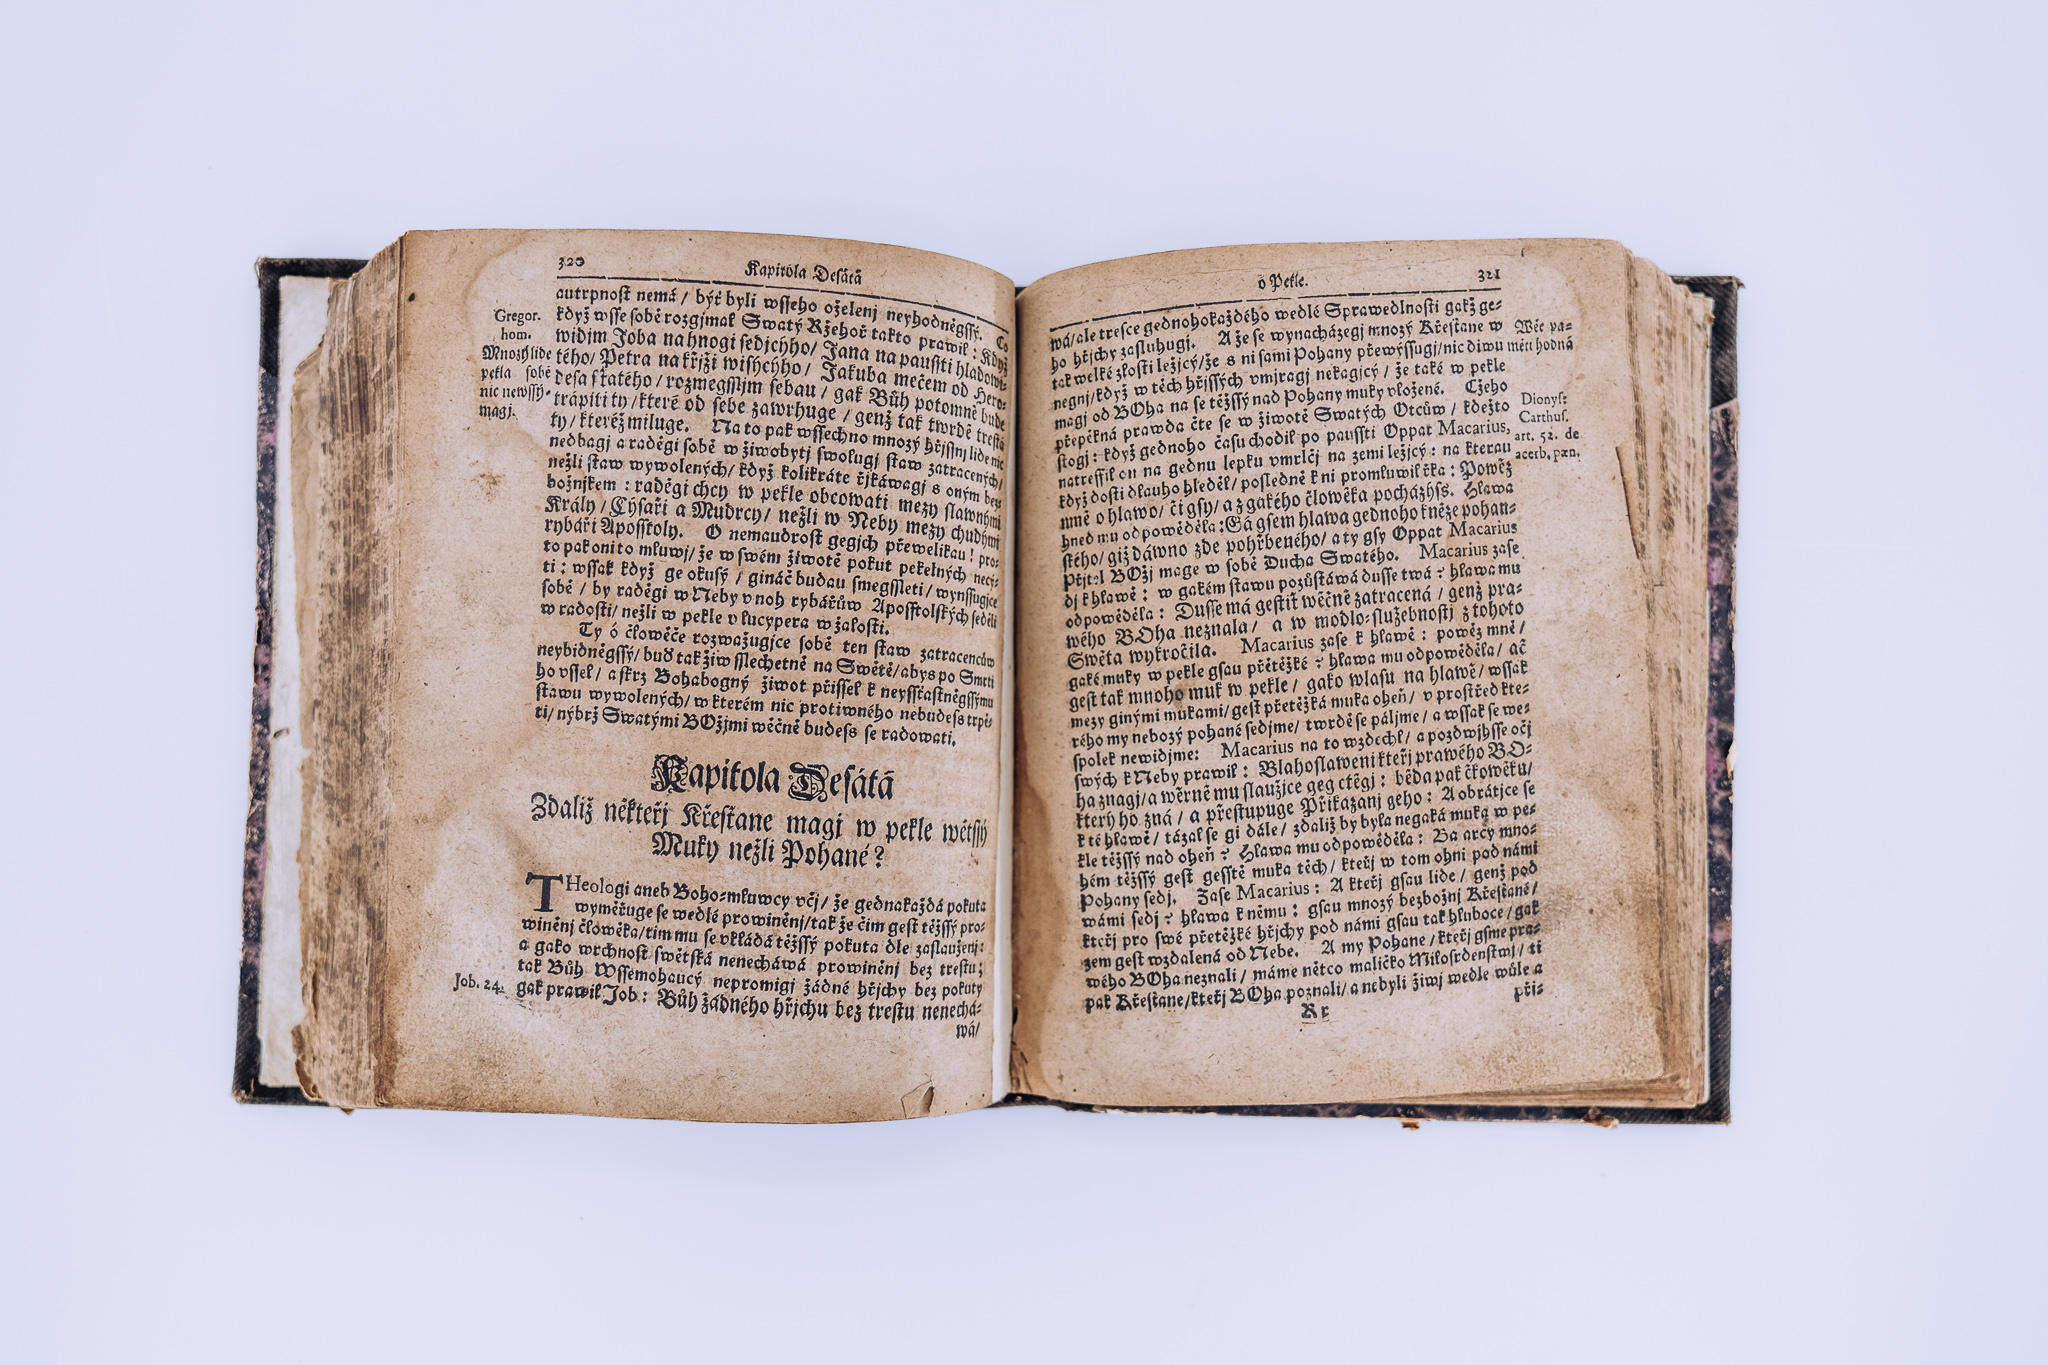 320
Kapitola Desátá
autrpnost nemá / byť byli wsseho oželenj neyhodněgssý. Co
když wsse sobě rozgjmal Swatý Ržehoř takto prawil: Když
widjm Joba na hnogi sedjcýho / Jana na paussti hladowi-
tého / Petra na křjži wisýcýho / Jakuba mečem od Hero-
desa sťatého / rozmegssljm sebau / gak Bůh potomně bude
trápiti ty / které od sebe zawrhuge / genž tak twrdě trestá
ty / kteréž miluge. Na to pak wssechno mnozý hřjssnj lidé nic
nedbagj a raděgi sobě w žiwobytj swolugj staw zatracených /
nežli staw wywolených / když kolikráte řjkáwagj s oným bez-
božnjkem: raděgi chcy w pekle obcowati mezy slawnými
Krály / Cýsaři a Mudrcy / nežli w Neby mezy chudými
rybáři Aposstoly. O nemaudrost gegich přewelikau! pro-
to pak oni to mluwj / že w swém žiwotě pokut pekelných necý-
ti: wssak když ge okusý / gináč budau smegssleti / wynssugjce
sobě / by raděgi w Neby v noh rybářůw Aposstolských seděli
w radosti / nežli w pekle v lucypera w žalosti.
Ty ó člowěče rozwažugjce sobě ten staw zatracencůw
neybidněgssý / buď tak žiw sslechetně na Swětě / abys po Smrti
ho vssel / a skrz Bohabogný žiwot přissel k neyssťastněgssýmu
stawu wywolených / w kterém nic protiwného nebudess trpě-
ti / nýbrž Swatými BOžjmi wěčně budess se radowati.
Gregor.
hom.
Mnozý lidé
pekla sobě
nic newssý-
magj.
Kapitola Desátá
Zdaliž někteřj Křesťané magj w pekle wětssý
Muky nežli Pohané?
THeologi aneb Boho-mluwcy včj / že gednakaždá pokuta
wyměřuge se wedlé prowiněnj / tak že čim gest těžssý pro-
winěnj člowěka / tim mu se vkládá těžssý pokuta dle zaslauženj:
a gako wrchnost swětská nenecháwá prowiněnj bez trestu;
tak Bůh Wssemohaucý nepromigj žádné hřjchy bez pokuty
gak prawil Job: Bůh žádného hřjchu bez trestu nenechá-
wá/
Job. 24.
ó Pekle.
321
wá / ale tresce gednohokaždého wedlé Sprawedlnosti gakž ge-
ho hřjchy zasluhugj. A že se wynacházegj mnozý Křesťané w
tak welké zlosti ležjcý / že s ni sami Pohany přewýssugj / nic diwu
negnj / když w těch hřjssých vmjragj nekagjcý / že také w pekle
magj od BOha na se těžssý nad Pohany muky vložené. Cžeho
přepěkná prawda čte se w žiwotě Swatých Otcůw / kdežto
stogj: když gednoho času chodil po paussti Oppat Macarius,
natreffil on na gednu lepku vmrlčj na zemi ležjcý: na kterau
když dosti dlauho hleděl / posledně k ni promluwil řka: Powěz
mně o hlawo / či gsy / a z gakého člowěka pocházýss. Hlawa
hned mu odpowěděla: Gá gsem hlawa gednoho kněze pohan-
ského / giž dáwno zde pohřbeného / a ty gsy Oppat Macarius
Přjtel BOžj mage w sobě Ducha Swatého. Macarius zase
dj k hlawě: w gakém stawu pozůstáwá dusse twá? hlawa mu
odpowěděla: Dusse má gestiť wěčně zatracená / genž pra-
wého BOha neznala / a w modlo-služebnostj z tohoto
Swěta wykročila. Macarius zase k hlawě: powěz mně /
gaké muky w pekle gsau přetěžké? hlawa mu odpowěděla / ač
gest tak mnoho muk w pekle / gako wlasu na hlawě / wssak
mezy ginými mukami / gest přetěžká muka oheň / v prostřed kte-
rého my nebozý pohané sedjme / twrdě se páljme / a wssak se we-
spolek newidjme: Macarius na to wzdechl / a pozdwjhsse očj
swých k Neby prawil: Blahoslaweni kteřj prawého BO-
ha znagj / a wěrně mu slaužjce geg ctěgj: běda pak člowěku /
který ho zná / a přestupuge Přikázanj geho: A obrátjce se
k té hlawě / tázal se gi dále / zdaliž by byla negaká muka w pe-
kle těžssý nad oheň? Hlawa mu odpowěděla: Ba arcy mno-
hém těžssý gest gesstě muka těch / kteřj w tom ohni pod námi
Pohany sedj. Zase Macarius: A kteřj gsau lidé / genž pod
wámi sedj? hlawa k němu: gsau mnozý bezbožnj Křesťané /
kteřj pro swé přetěžké hřjchy pod námi gsau tak hluboce / gak
zem gest wzdálená od Nebe. A my Pohané / kteřj gsme pra-
wého BOha neznali / máme nětco maličko Milosrdenstwj / ti
pak Křesťané / kteřj BOha poznali / a nebyli žiwj wedle wůle a
Rr
při-
Wěc pa-
měti hodná
Dionys:
Carthus.
art. 52. de
acerb. pæn.